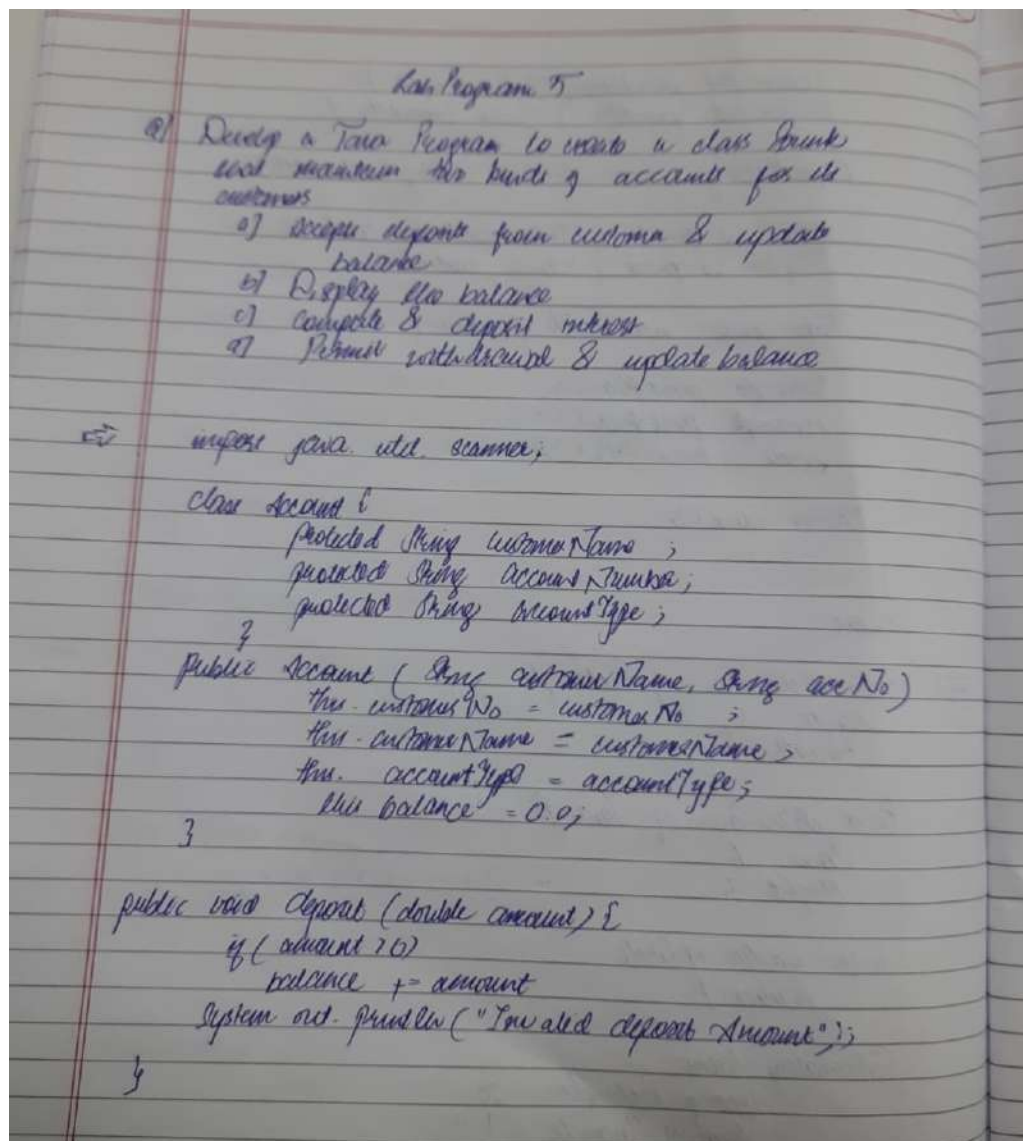 Lab Program 5
Q) Develop a Java Program to create a class Bank
and maintain two kinds of accounts for its
customers
a] accept deposit from customer & update
balance
b] Display the balance
c] Compute & deposit interest
d] Permit withdrawal & update balance
import java. util. scanner;
class Account {
protected String customerName ;
protected String accountNumber;
protected String accountType ;
}
public Account ( String customerName, String accNo)
this. customerNo = customerNo ;
this. customerName = customerName ;
this. accountType = accountType ;
this balance = 0.0;
}
public void deposit (double amount) {
if ( amount >0)
balance += amount
System out. println ("Invalid deposit Amount");
}